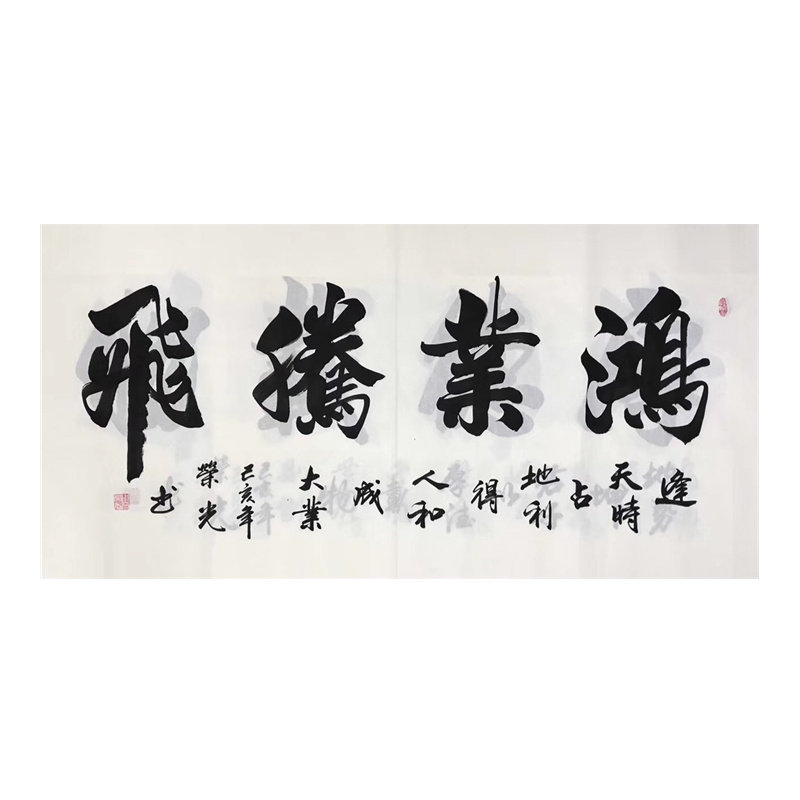 鴻業騰飛
逢天時占地利得人和成大業
己亥年
榮光书